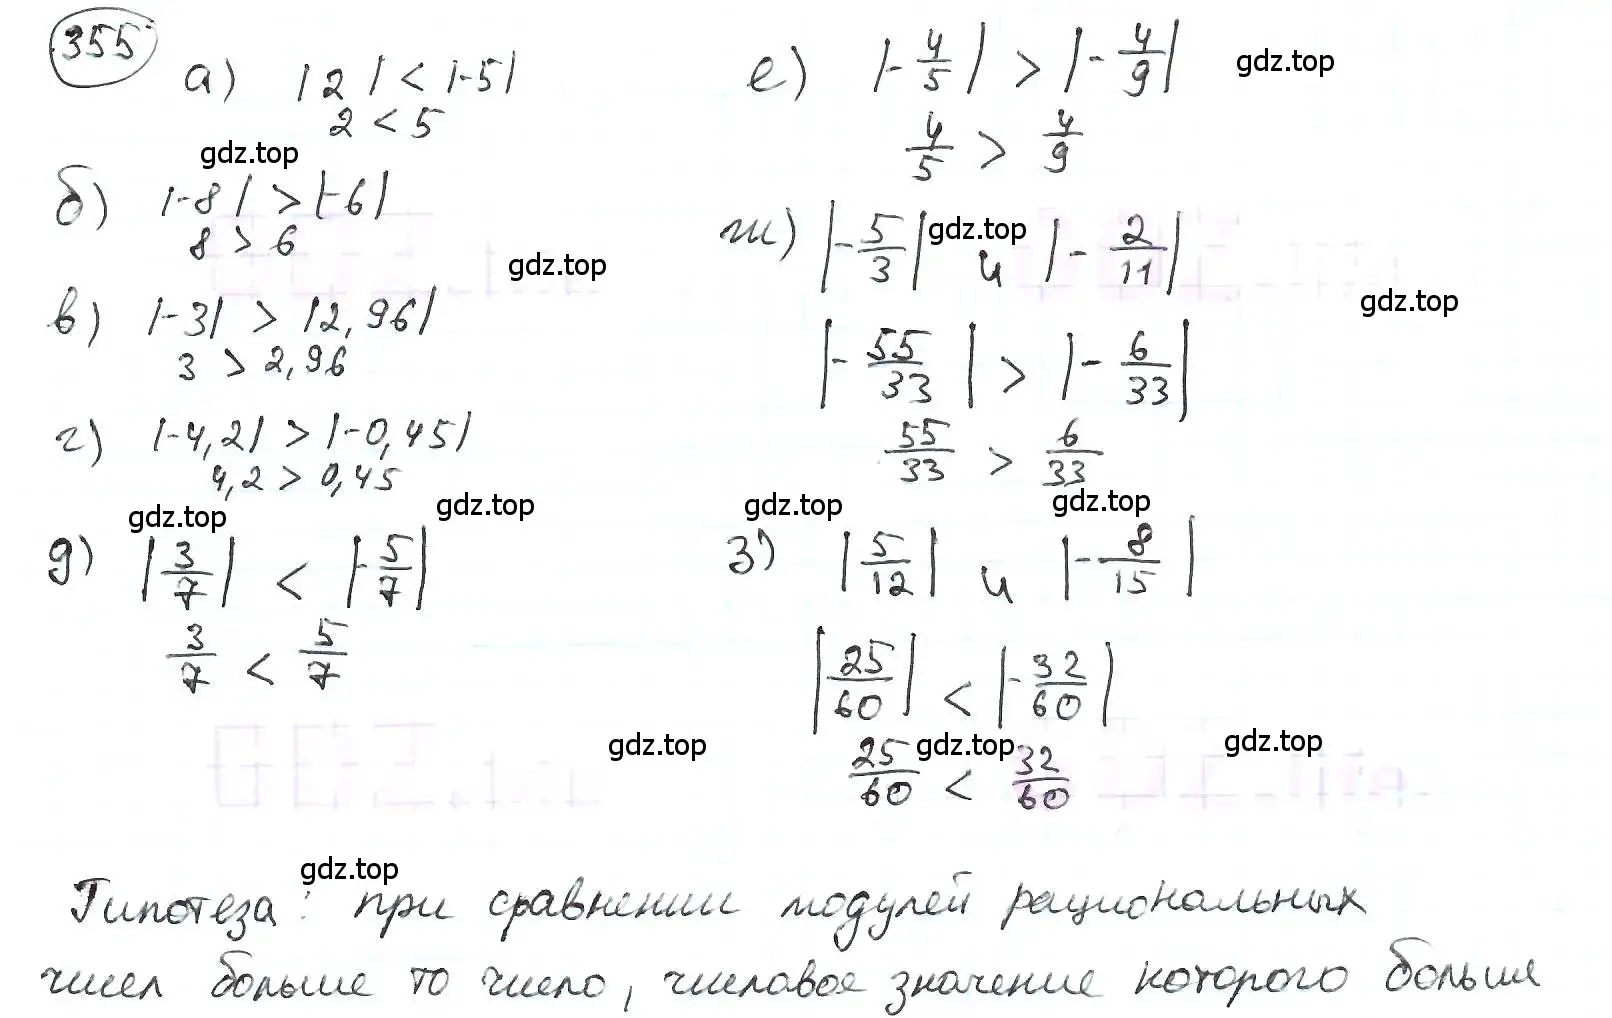 355
а) |2| < |-5|
2 < 5
gdz.top
б) |-8| > |-6|
8 > 6
gdz.top
в) |-3| > |2,96|
3 > 2,96
г) |-4,2| > |-0,45|
4,2 > 0,45
gdz.top
gdz.top
д) |3/7| < |-5/7|
3/7 < 5/7
gdz.top
е) |-4/5| > |-4/9|
gdz.top
4/5 > 4/9
ж) |-5/3| и |-2/11|
gdz.top
gdz.top
|-55/33| > |-6/33|
55/33 > 6/33
gdz.top
gdz.top
з) |5/12| и |-8/15|
|25/60| < |-32/60|
gdz.top
gdz.top
25/60 < 32/60
gdz.top
Гипотеза: при сравнении модулей рациональных
чисел больше то число, числовое значение которого больше